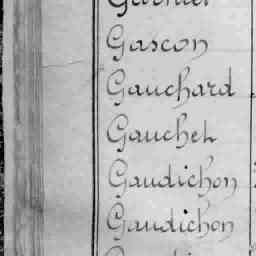 Garnier
Gascon
Gauchard
Gauchet
Gaudichon
Gaudichon